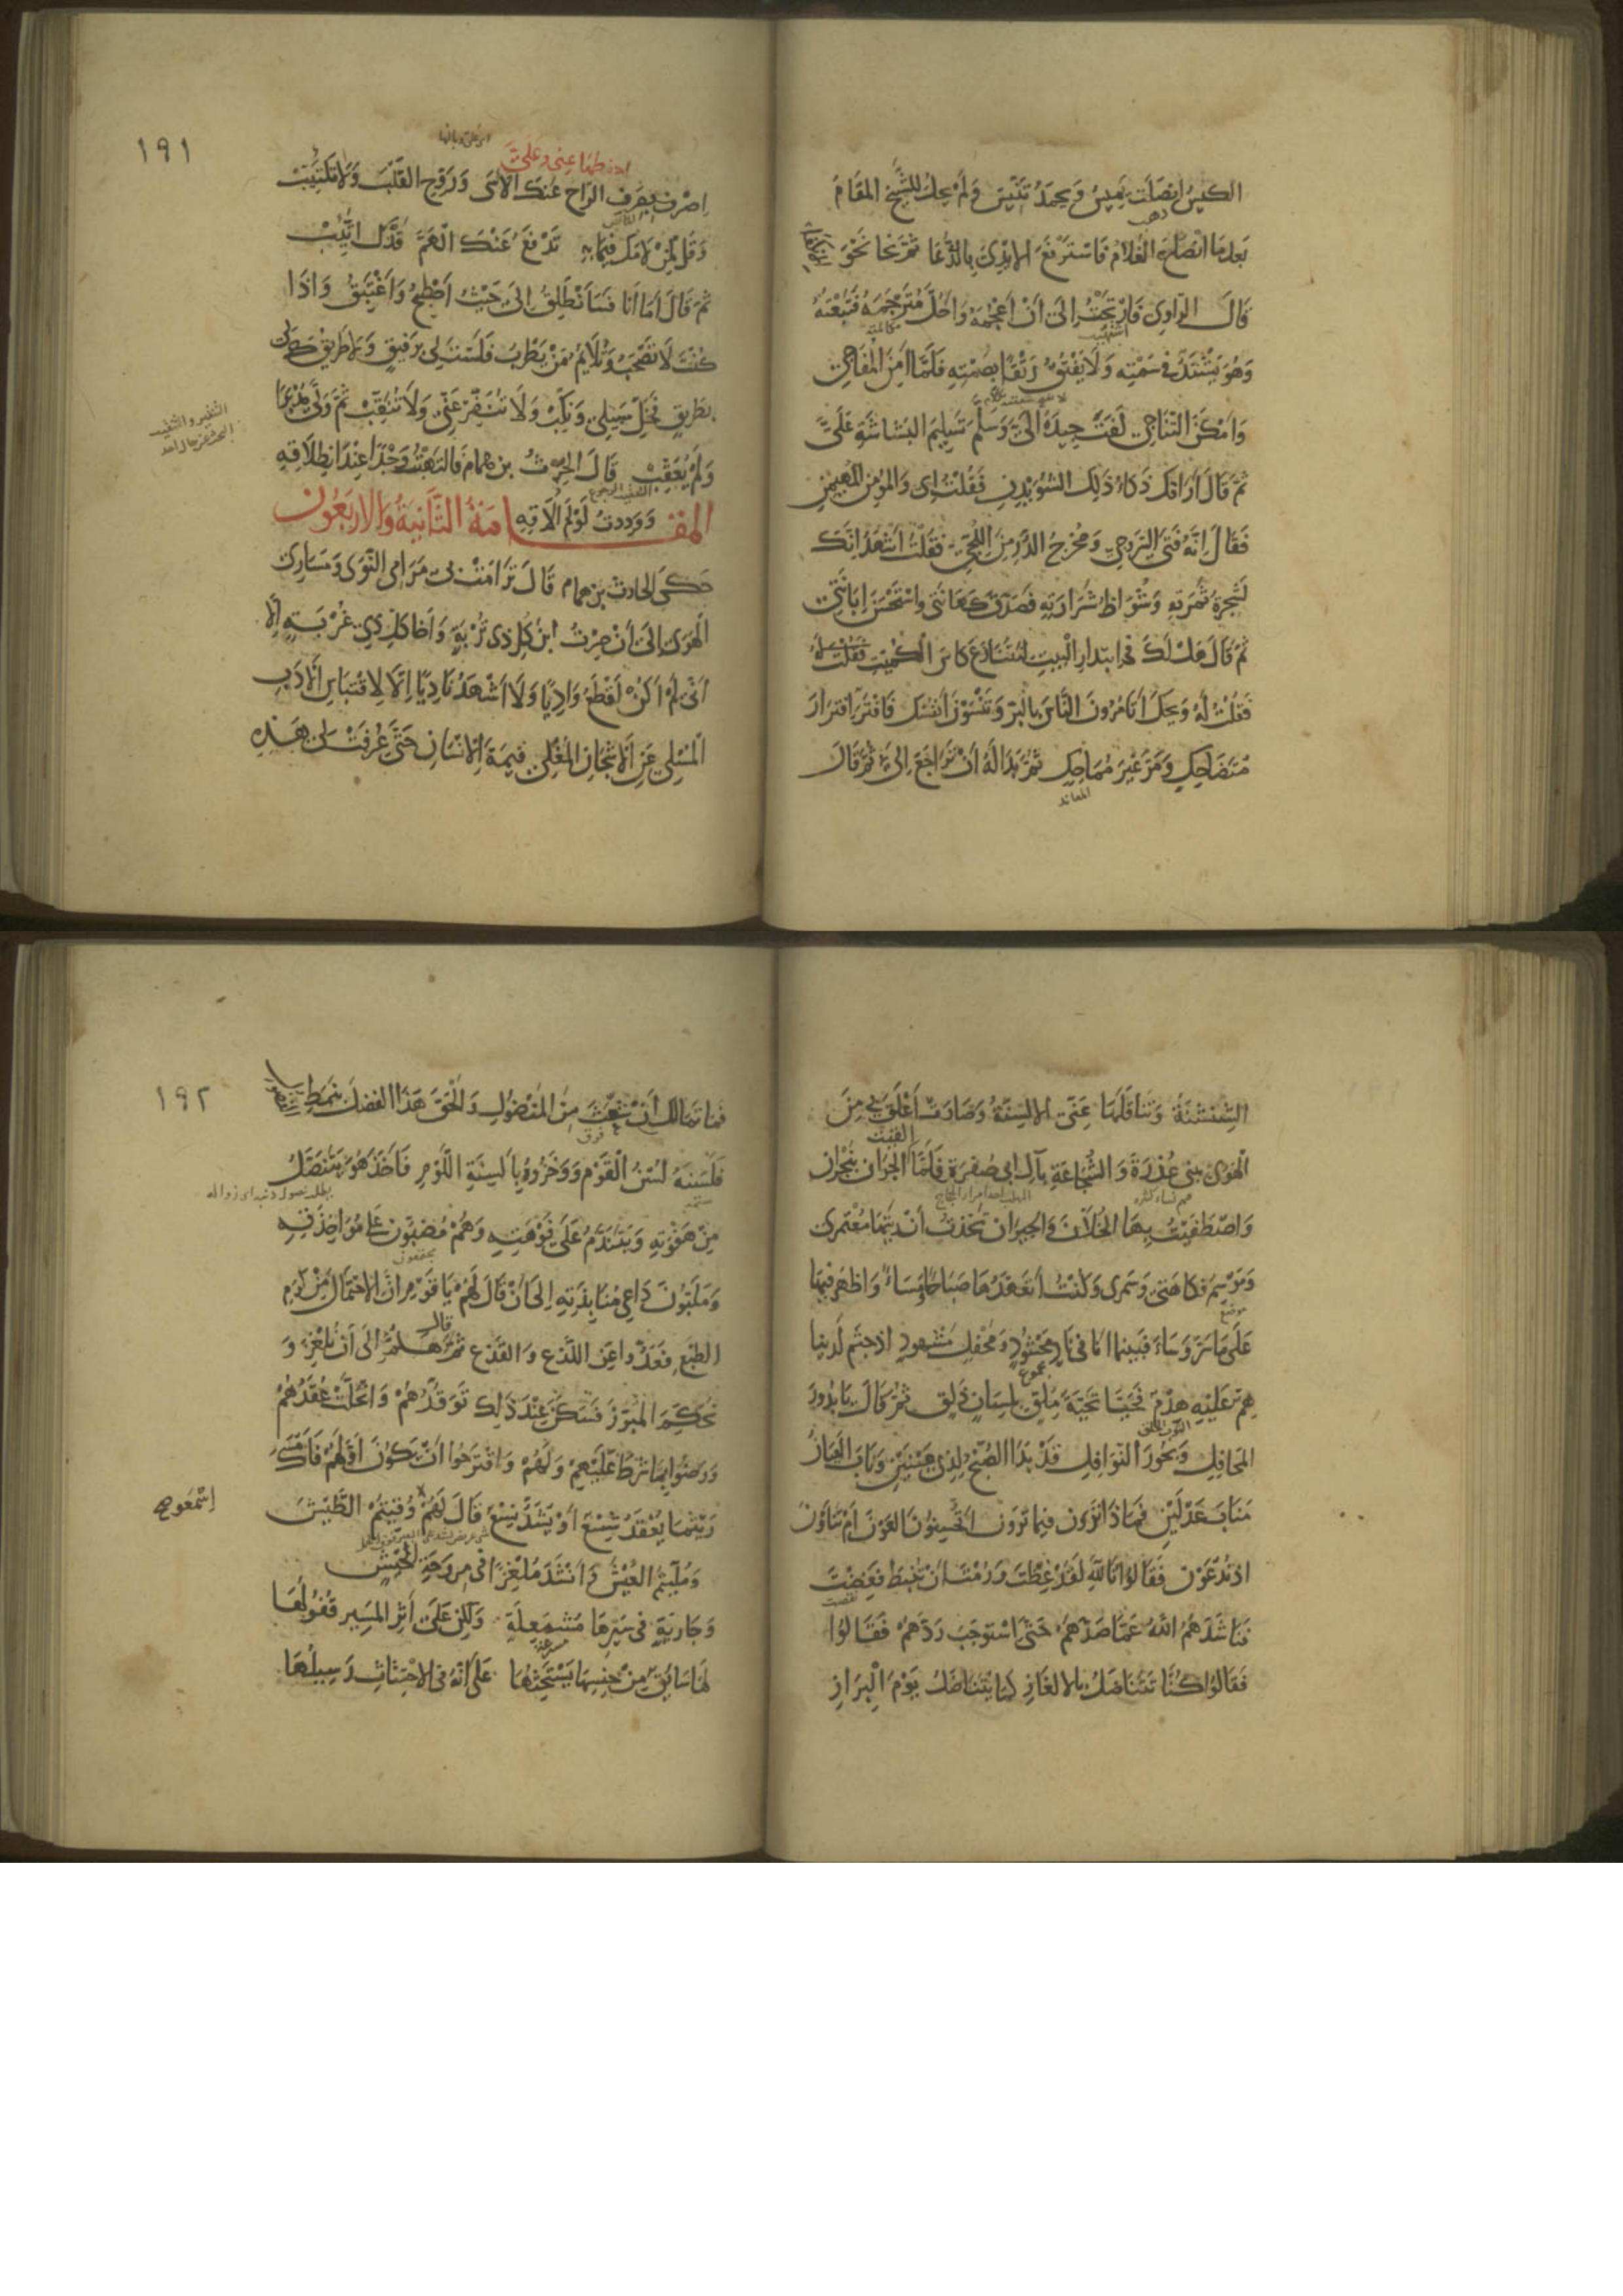 الكيس انصلت يميس ويحمد تنيس ولم يحل للشيخ المقام
بعدما انصلت الغلام فاسترفع الايدي بالدعا ثم نحا نحو
قال الراوي فارتحت الى ان اعجمه واحل مترجمه فتبعته
وهو يشتد في سمته ولا يفتق رتقا بصمته فلما امن المفاجي
وامكن التناجي لفت جيده الي وسلم تسليم البشاشة علي
ثم قال اراقك ذكاء ذلك الشويدن فقلت اي والمؤمن المهيمن
فقال انه فتى السروجي ومخرج الدر من اللجي فقلت اشهد انك
لشجرة ثمرته وشواظ شرارته فصدق كهانتي واستحسن ابانتي
ثم قال هل لك في ابتدار البيت لنتنازع كاس الكميت فقلت له
فقلت له ويحك اتامرون الناس بالبر وتنسون انفسكم فافتر افترار
متضاحك ومر غير مماحك ثم بدا له ان تراجع الي ثم قال
المعاند
١٩١
اصرف بصرف الراح عنك الاسى وروح القلب ولا تكتئب
وقل لمن لامك فيما به تدفع عنك الهم قدك اتئب
ثم قال اما انا فسانطلق الى حيث اصطبح واغتبق واذا
كنت لا تصحب وتلايم من يطرب فلست لي برفيق ولا طريقك لي
بطريق فخل سبيلي ونكب ولا تنقر عني ولا تنقب ثم ولى مدبرا
ولم يعقب قال الحرث بن همام فالتهبت وجدا عند انطلاقه
ووددت لو لم الاقه
المقامة الثانية والاربعون
حكى الحارث بن همام قال ترامت بي مرامي النوى ومساري
الهوى الى ان صرت ابن كل ذي تربة واخا كل ذي غربة الا
اني لم اكن اقطع واديا ولا اشهد ناديا الا لاقتباس الادب
المسلي عن الاشجان المغلي قيمة الانسان حتى عرفت لي هذه
الشنشنة وتناقلتها عني الالسنة وصارت اعلق بي من
الهوى ببني عذرة والشجاعة بآل ابي صفرة فلما القيت الجران بنجران
واصطفيت بها الخلان والجيران تخذت انديتها معتمري
وموسم فكاهتي وسمري وكنت اتعهدها صباحا ومساء واظهر فيها
على ما سر وساء فبينما انا في ناد محشود ومحفل مشهود اذ جثم لدينا
هم عليه هدم فحيا تحية ملق بلسان ذلق ثم قال يا بدور
المحافل وبحور النوافل قد بدا الصبح لذي عينين وناب العيان
مناب عدلين فماذا ترون فيما ترون اتحسنون العون ام تناون
اذ تدعون فقالوا تالله لقد غظت ورمت ان تنبط فغيضت
فناشدهم الله عما صدهم حتى استوجب ردهم فقالوا
فقالوا كنا نتناضل بالالغاز كما يتناضل يوم البراز
١٩٢
فما تمالك ان شعث من المنضول والحق هذا الفضل بنمط
فلسنته لسن القوم ووخزوه بالسنة اللوم فاخذ هو يتنصل
من هفوته ويتندم على فوهته وهم مضبون على مؤاخذته
وملبون داعي منابذته الى ان قال لهم يا قوم ان الاحتمال من كرم
الطبع فعدوا عن اللذع والقذع ثم هلم الى ان نلغز و
نحكم المبرز فسكن عند ذلك توقدهم وانحلت عقدهم
ورضوا بما شرط عليهم ولهم واقترحوا ان يكون اولهم فامسك
ريثما يعقد شسع او يشد نسع ثم قال لهم وقيتم الطيش
اسمعوا
ومليتم العيش وانشد ملغزا في مروحة الخيش
وجارية في سيرها مشمعلة ولكن على اثر المسير قفولها
لها سائق من جنسها يستحثها على انه في الاحتثاث رسيلها